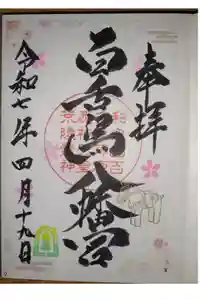 奉拝
白鳥八幡宮
令和七年四月十九日